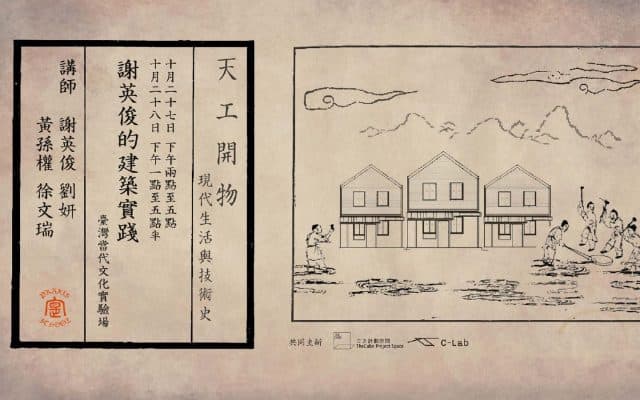 天工開物
現代生活與技術史
十月二十七日 下午兩點至五點
十月二十八日 下午一點至五點半
謝英俊的建築實踐
臺灣當代文化實驗場
講師 謝英俊 劉妍
黃孫權 徐文瑞
PRAXIS
SCHOOL
共同主辦
立方計劃空間
TheCube Project Space
C-Lab